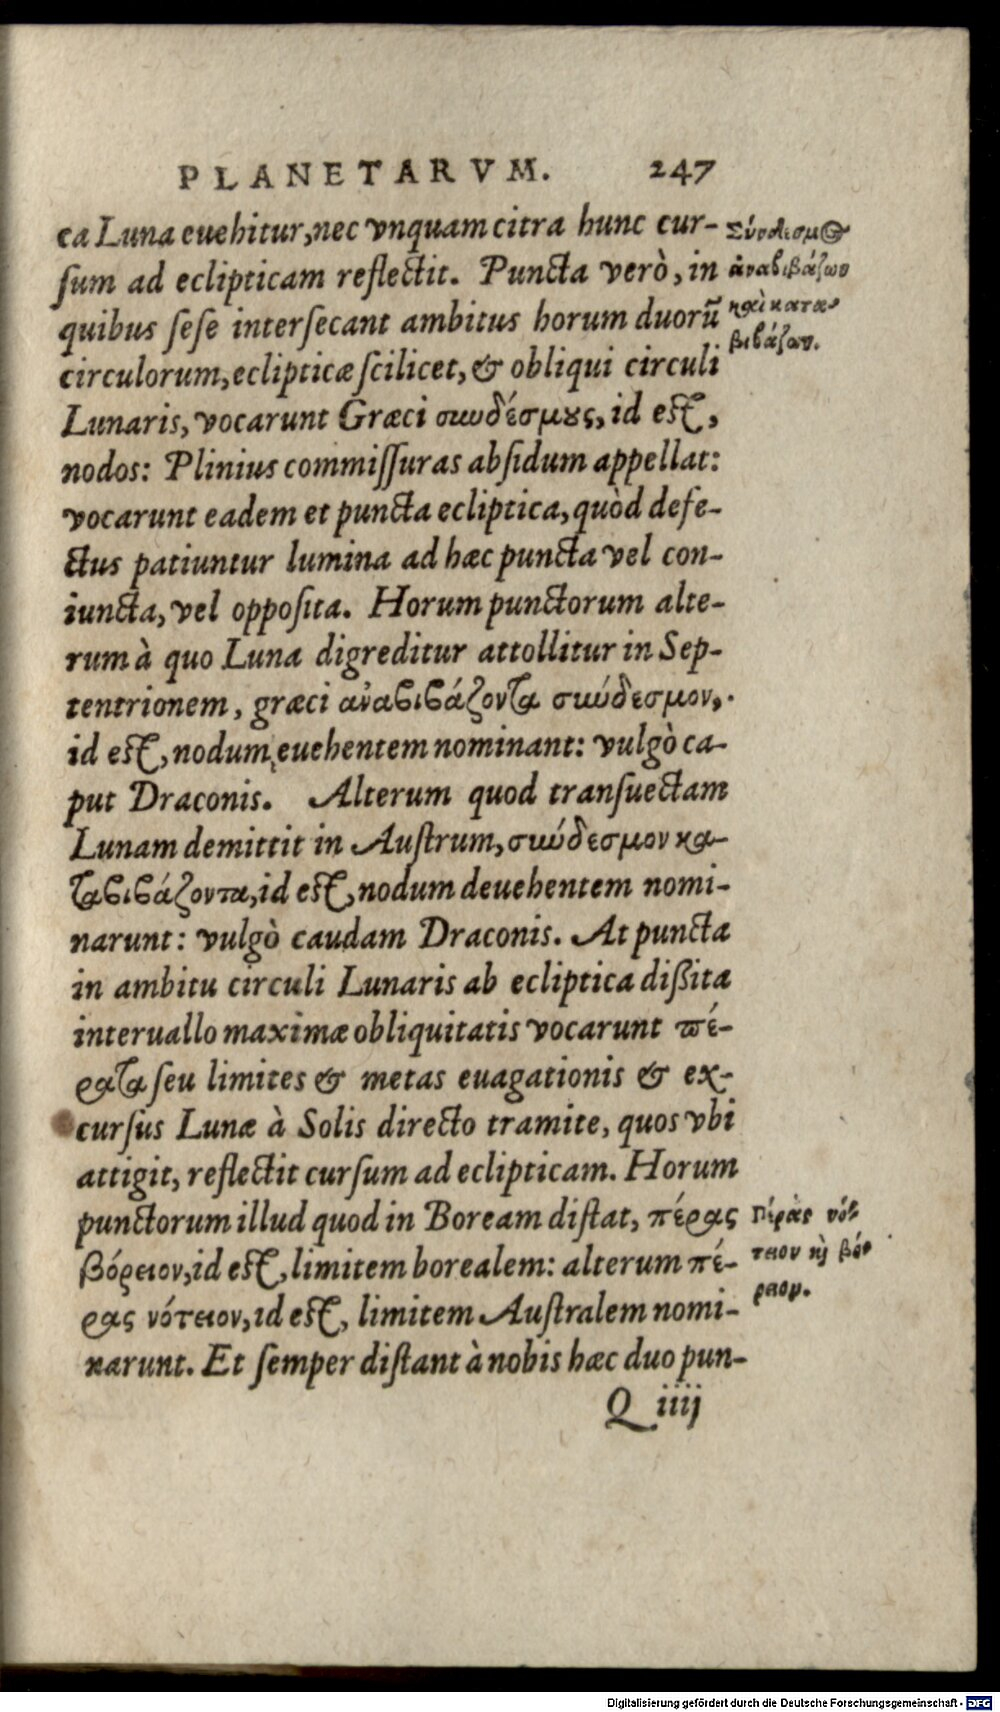 PLANETARVM. 247
ea Luna euehitur, nec vnquam citra hunc cur-
sum ad eclipticam reflectit. Puncta verò, in
quibus sese intersecant ambitus horum duorũ
circulorum, eclipticæ scilicet, & obliqui circuli
Lunaris, vocarunt Græci συνδέσμους, id est,
nodos: Plinius commissuras absidum appellat:
vocarunt eadem et puncta ecliptica, quòd defe-
ctus patiuntur lumina ad hæc puncta vel con-
iuncta, vel opposita. Horum punctorum alte-
rum à quo Luna digreditur attollitur in Sep-
tentrionem, græci ἀναβιβάζοντα σύνδεσμον,
id est, nodum euehentem nominant: vulgò ca-
put Draconis. Alterum quod transuectam
Lunam demittit in Austrum, σύνδεσμον κα-
ταβιβάζοντα, id est, nodum deuehentem nomi-
narunt: vulgò caudam Draconis. At puncta
in ambitu circuli Lunaris ab ecliptica dissita
interuallo maximæ obliquitatis vocarunt πέ-
ρατα seu limites & metas euagationis & ex-
cursus Lunæ à Solis directo tramite, quos vbi
attigit, reflectit cursum ad eclipticam. Horum
punctorum illud quod in Boream distat, πέρας
βόρειον, id est, limitem borealem: alterum πέ-
ρας νότειον, id est, limitem Australem nomi-
narunt. Et semper distant à nobis hæc duo pun-
Q iiij
Σύνδεσμος
ἀναβιβάζων
καὶ κατα-
βιβάζων.
Πέρας νό-
τειον καὶ βό-
ρειον.
Digitalisierung gefördert durch die Deutsche Forschungsgemeinschaft - DFG